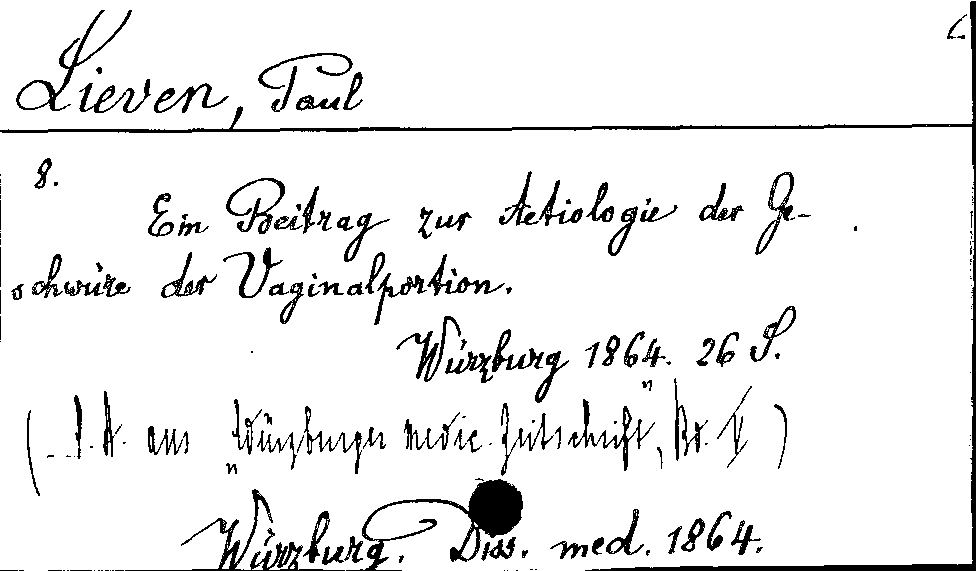 Lieven, Paul
8.
Ein Beitrag zur Aetiologie der Ge-
schwüre der Vaginalportion.
Würzburg 1864. 26 S.
(S. A. aus „Würzburger medic. Zeitschrift", Bd. V)
Würzburg. Diss. med. 1864.